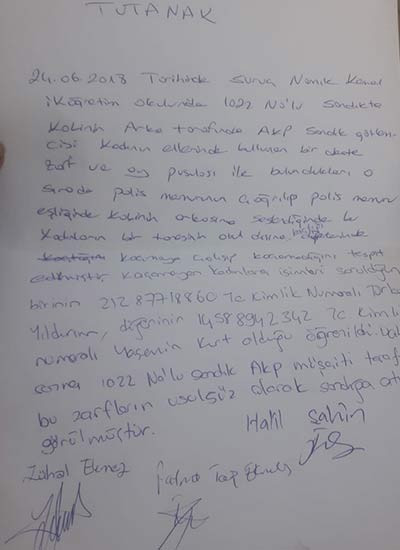 TUTANAK
24.06.2018 Tarihinde Suruç Namık Kemal
ilköğretim okulunda 1022 No'lu sandıkta
Kabinin Arka tarafında AKP Sandık görev-
cisi Kadının ellerinde bir adette
zarf ve oy pusulası ile bulundukları o
Sırada polis memurunun çağrılıp polis memuru
eşliğinde Kabinin arkasına seslendiğinde bu
Kadınların bir tanesinin okul dışına
kaçmaya çalışıp kaçamadığını tespit
edilmiştir. Kaçamayan Kadınlara isimleri sorulduğun
birinin 21287718860 Tc Kimlik Numaralı
Yıldırım, diğerinin 14588942342 Tc Kimli
numaralı Yasemin Kurt olduğu öğrenildi.
sonra 1022 No'lu sandık Akp müşaiti taraf
bu zarfların usulsüz olarak sandığa atı
görülmüştür.
Halil Şahin
Zühal Ekmez
Fatma